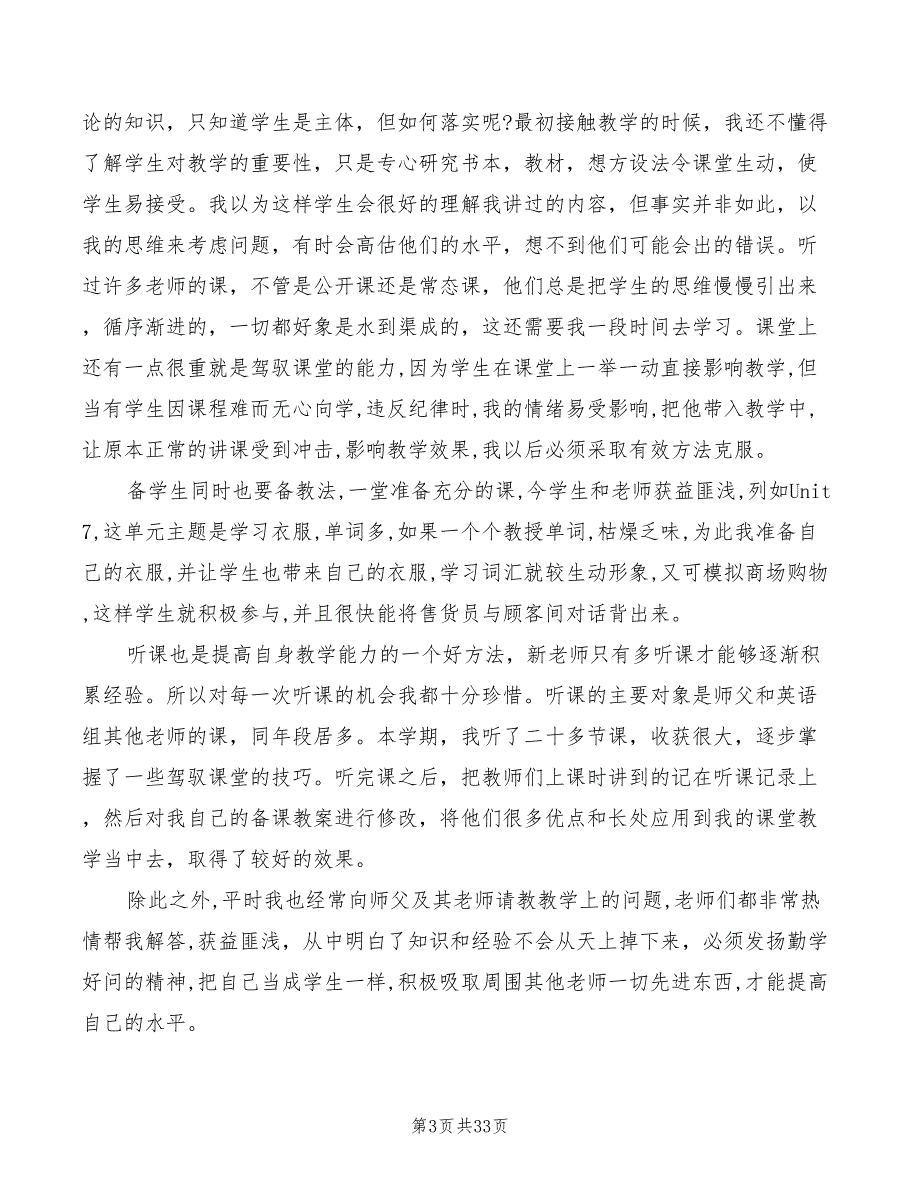 论的知识，只知道学生是主体，但如何落实呢?最初接触教学的时候，我还不懂得
了解学生对教学的重要性，只是专心研究书本，教材，想方设法令课堂生动，使
学生易接受。我以为这样学生会很好的理解我讲过的内容，但事实并非如此，以
我的思维来考虑问题，有时会高估他们的水平，想不到他们可能会出的错误。听
过许多老师的课，不管是公开课还是常态课，他们总是把学生的思维慢慢引出来
，循序渐进的，一切都好象是水到渠成的，这还需要我一段时间去学习。课堂上
还有一点很重就是驾驭课堂的能力,因为学生在课堂上一举一动直接影响教学,但
当有学生因课程难而无心向学,违反纪律时,我的情绪易受影响,把他带入教学中,
让原本正常的讲课受到冲击,影响教学效果,我以后必须采取有效方法克服。
备学生同时也要备教法,一堂准备充分的课,今学生和老师获益匪浅,列如Unit
7,这单元主题是学习衣服,单词多,如果一个个教授单词,枯燥乏味,为此我准备自
己的衣服,并让学生也带来自己的衣服,学习词汇就较生动形象,又可模拟商场购物
,这样学生就积极参与,并且很快能将售货员与顾客间对话背出来。
听课也是提高自身教学能力的一个好方法，新老师只有多听课才能够逐渐积
累经验。所以对每一次听课的机会我都十分珍惜。听课的主要对象是师父和英语
组其他老师的课，同年段居多。本学期，我听了二十多节课，收获很大，逐步掌
握了一些驾驭课堂的技巧。听完课之后，把教师们上课时讲到的记在听课记录上
，然后对我自己的备课教案进行修改，将他们很多优点和长处应用到我的课堂教
学当中去，取得了较好的效果。
除此之外,平时我也经常向师父及其老师请教教学上的问题,老师们都非常热
情帮我解答,获益匪浅，从中明白了知识和经验不会从天上掉下来，必须发扬勤学
好问的精神,把自己当成学生一样,积极吸取周围其他老师一切先进东西,才能提高
自己的水平。
第3页共33页